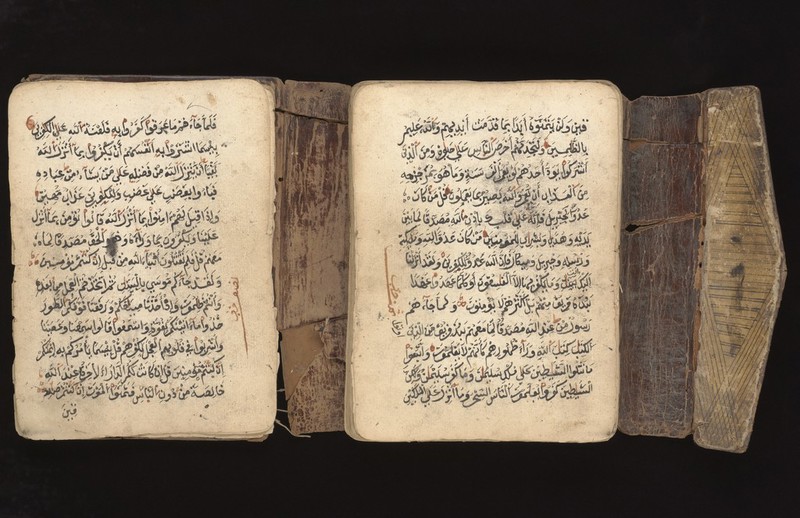 فلما جاءهم ما عرفوا كفروا به فلعنة الله على الكفرين
بيسما اشتروا به أنفسهم أن يكفروا بما أنزل الله
بغيا أن ينزل الله من فضله على من يشاء من عباده
فباءو بغضب على غضب وللكفرين عذاب مهين
وإذا قيل لهم ءامنوا بما أنزل الله قالوا نومن بما أنزل
علينا ويكفرون بما وراءه وهو الحق مصدقا لما
معهم قل فلم تقتلون أنبياء الله من قبل إن كنتم مومنين
ولقد جاءكم موسى بالبينت ثم اتخذتم العجل من بعده
وأنتم ظلمون وإذ أخذنا ميثقكم ورفعنا فوقكم الطور
خذوا ما ءاتينكم بقوة واسمعوا قالوا سمعنا وعصينا
وأشربوا في قلوبهم العجل بكفرهم قل بيسما يأمركم به إيمنكم
إن كنتم مومنين قل إن كانت لكم الدار الآخرة عند الله
خالصة من دون الناس فتمنوا الموت إن كنتم صد
قين
قين ولن يتمنوه أبدا بما قدمت أيديهم والله عليم
بالظلمين ولتجدنهم أحرص الناس على حيوة ومن الذين
أشركوا يود أحدهم لو يعمر ألف سنة وما هو بمزحزحه
من العذاب أن يعمر والله بصير بما يعملون قل من كان
عدوا لجبريل فإنه نزله على قلبك بإذن الله مصدقا لما بين
يديه وهدى وبشرى للمومنين من كان عدوا لله وملئكته
ورسله وجبريل وميكل فإن الله عدو للكفرين ولقد أنزلنا
إليك ءايت بينت وما يكفر بها إلا الفسقون أو كلما عهدوا عهدا
نبذه فريق منهم بل أكثرهم لا يومنون ولما جاءهم
رسول من عند الله مصدق لما معهم نبذ فريق من الذين أوتوا
الكتب كتب الله وراء ظهورهم كأنهم لا يعلمون واتبعوا
ما تتلوا الشيطين على ملك سليمن وما كفر سليمن ولكن
الشيطين كفروا يعلمون الناس السحر وما أنزل على الملكين